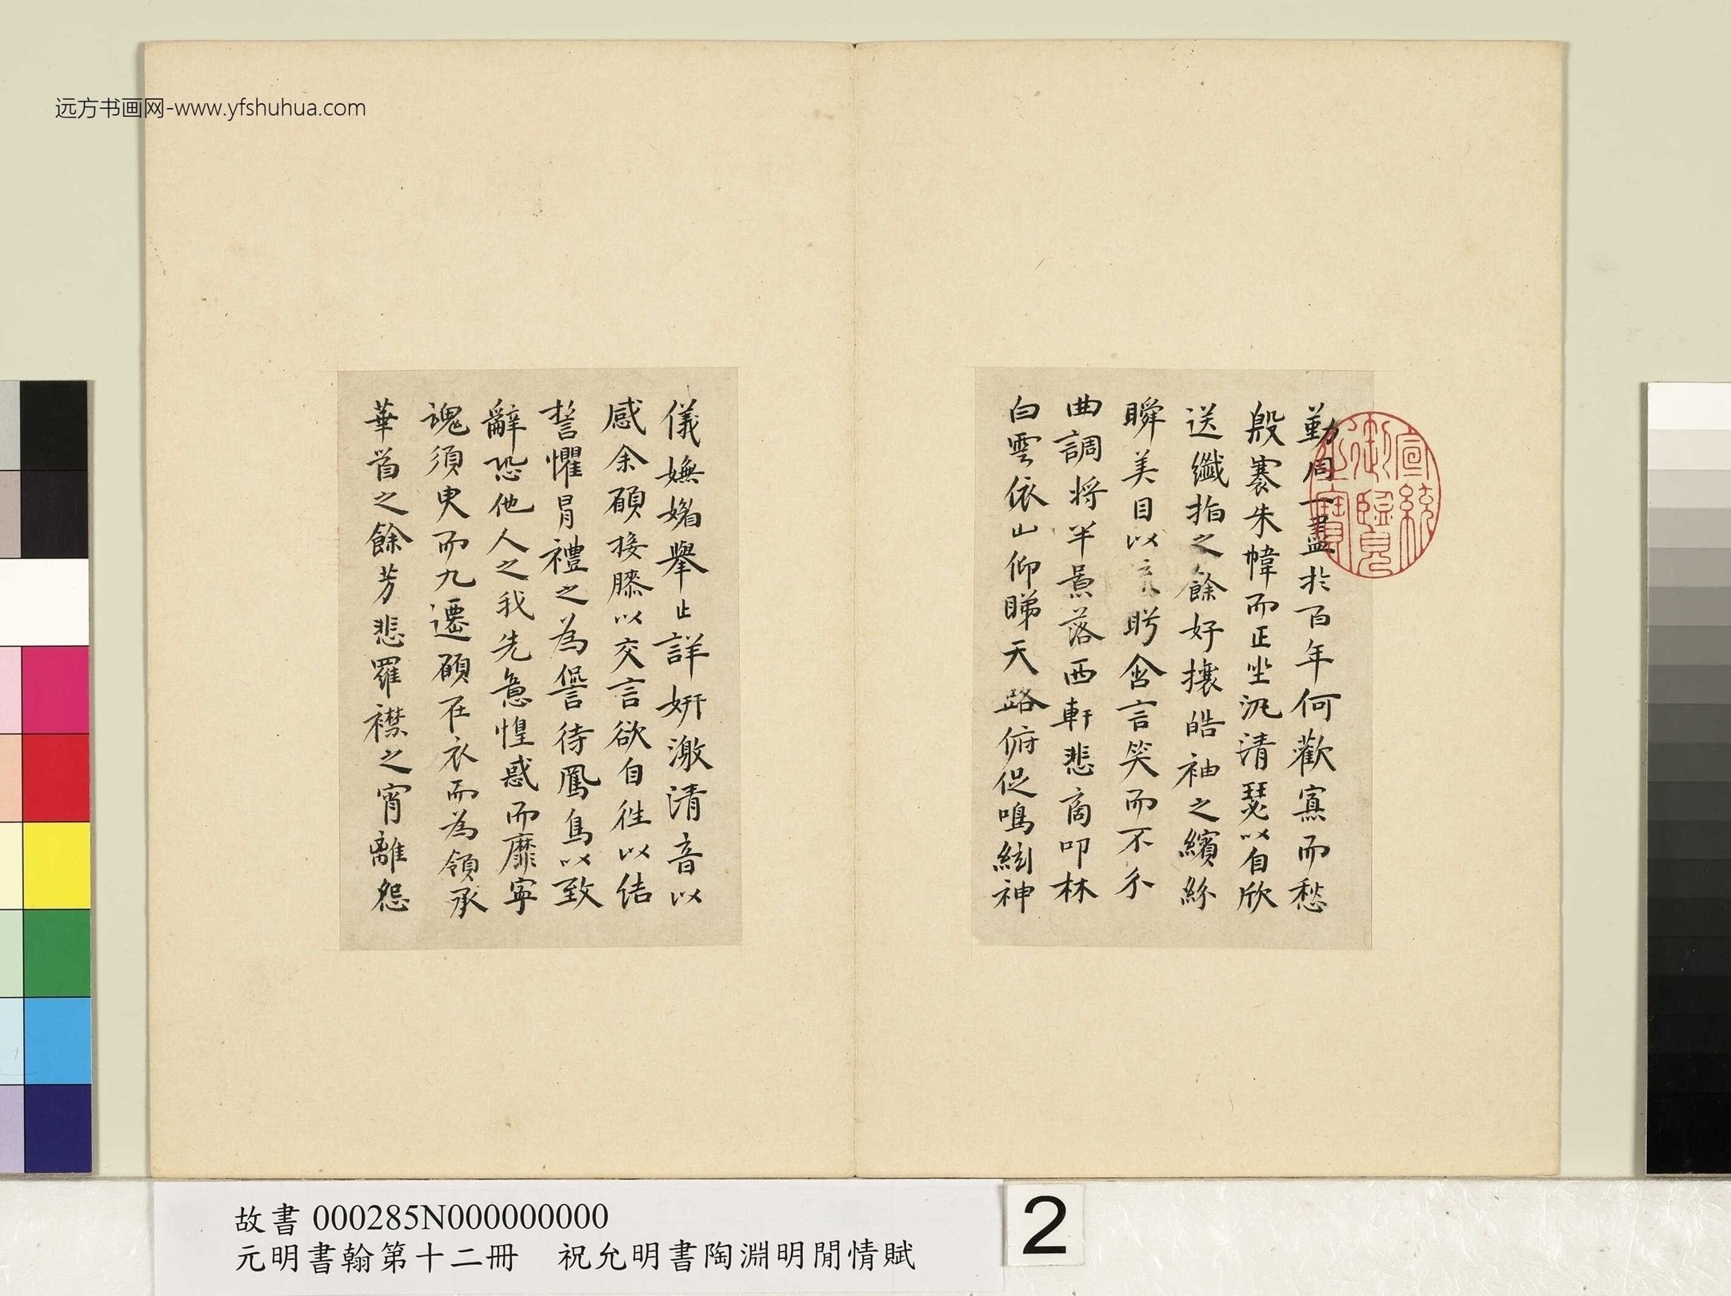 远方书画网-www.yfshuhua.com
勤同一盡於百年何歡寡而愁
殷褰朱幃而正坐汎清瑟以自欣
送纖指之餘好攘皓袖之繽紛
瞬美目以流眄含言笑而不分
曲調將半景落西軒悲商叩林
白雲依山仰睇天路俯促鳴絃神
儀嫵媚舉止詳妍激清音以
感余願接膝以交言欲自往以結
誓懼冐禮之為諐待鳳鳥以致
辭恐他人之我先意惶惑而靡寧
魂須臾而九遷願在衣而為領承
華首之餘芳悲羅襟之宵離怨
宣統御覽之寶
故書 000285N000000000
元明書翰第十二冊 祝允明書陶淵明閒情賦
2